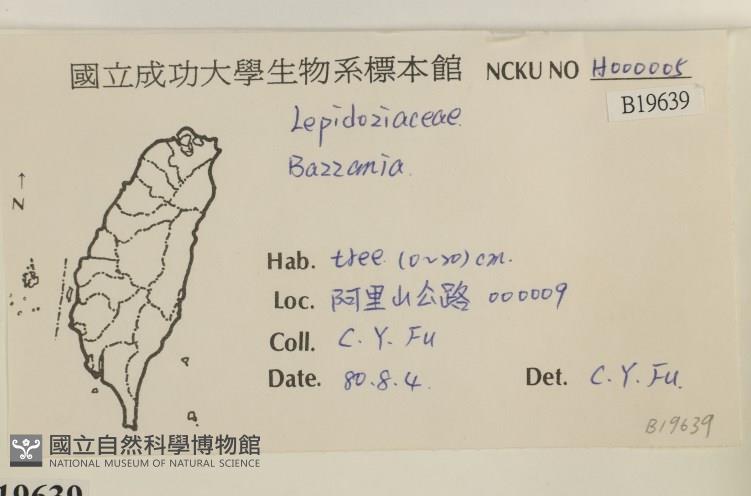 國立成功大學生物系標本館 NCKU NO H000005
B19639
Lepidoziaceae.
Bazzania.
N
Hab. tree (0~20) cm.
Loc. 阿里山公路 000009
Coll. C. Y. Fu
Date. 80.8.4. Det. C. Y. Fu.
B19639
國立自然科學博物館
NATIONAL MUSEUM OF NATURAL SCIENCE
19639